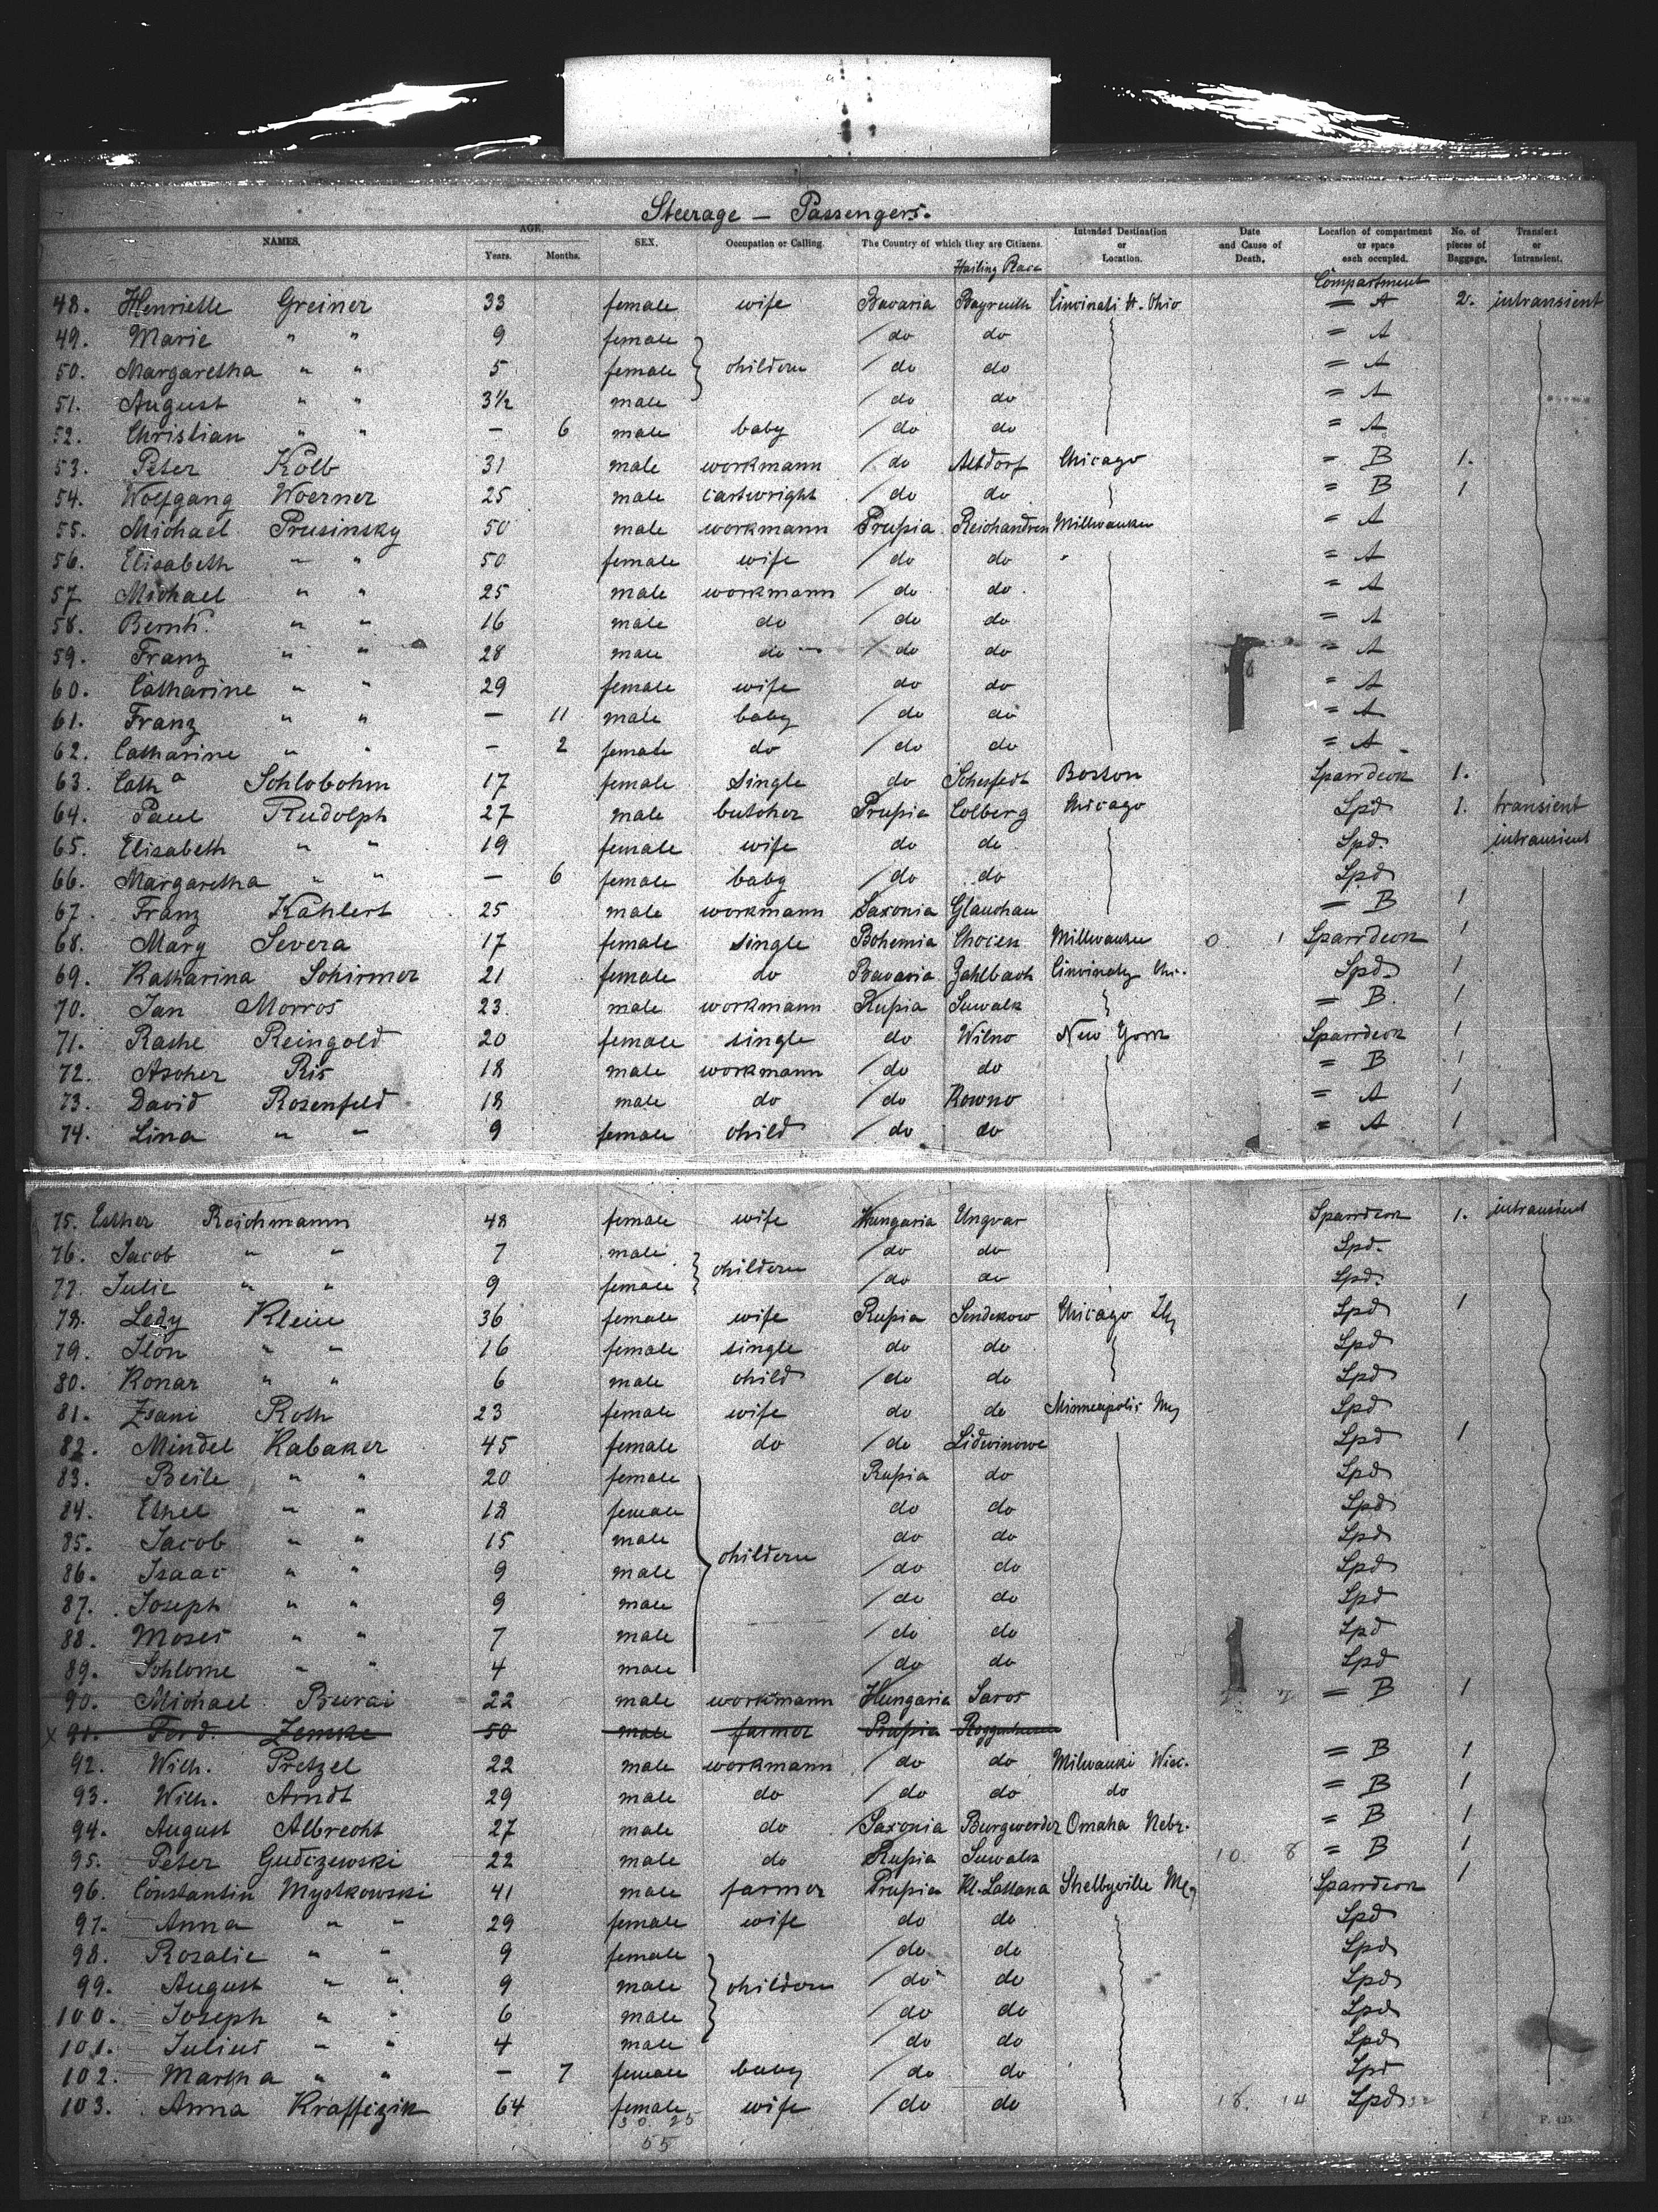 Steerage — Passengers.
NAMES. AGE. Years. Months. SEX. Occupation or Calling. The Country of which they are Citizens. Intended Destination or Location. Date and Cause of Death. Location of compartment or space each occupied. No. of pieces of Baggage. Transient or Intransient.
Hailing Place Compartment
48. Henriette Greiner 33 female wife Bavaria Bayreuth Cincinati St. Ohio = A 2. intransient
49. Marie " " 9 female do do = A
50. Margaretha " " 5 female childern do do = A
51. August " " 3½ male do do = A
52. Christian " " — 6 male baby do do = A
53. Peter Kolb 31 male workmann do Altdorf Chicago = B 1.
54. Wolfgang Woerner 25 male cartwright do do = B 1
55. Michael Prusinsky 50 male workmann Prussia Millwaukee = A
56. Elisabeth " " 50 female wife do do = A
57 Michael " " 25 male workmann do do = A
58. Bernh. " " 16 male do do do = A
59. Franz " " 28 male do do do = A
60. Catharine " " 29 female wife do do = A
61. Franz " " — 11 male baby do do = A
62. Catharine " " — 2 female do do do = A
63. Cath a Schlobohm 17 female single do Boston Sparrdeck 1.
64. Paul Rudolph 27 male butcher Prussia Colberg Chicago Spd 1. transient
65. Elisabeth " " 19 female wife do do Spd. intransient
66. Margaretha " " — 6 female baby do do Spd
67. Franz Kahlert 25 male workmann Saxonia Glauchau = B 1
68. Mary Severa 17 female single Bohemia Chocen Millwaukee 0 1 Sparrdeck 1
69. Katharina Schirmer 21 female do Bavaria Zahlbach Spd. 1
70. Jan Morros 23 male workmann Russia Suwalk = B. 1
71. Rashe Reingold 20 female single do Wilno New York Sparrdeck 1
72. Ascher Ris 18 male workmann do do = B 1
73. David Rosenfeld 18 male do do Kowno = A 1
74. Lina " " 9 female child do do = A 1
75. Esther Reichmann 48 female wife Hungaria Ungvar Sparrdeck 1. intransient
76. Jacob " " 7 male do do Spd.
77. Julie " " 9 female childern do do Spd.
78. Ledy Klein 36 female wife Russia Chicago Spd 1
79. Ilon " " 16 female single do do Spd
80. Konar " " 6 male child do do Spd
81. Zsani Roth 23 female wife do do Minneapolis Spd
82. Mindel Kabaker 45 female do do Lidwinowe Spd 1
83. Beile " " 20 female Russia do Spd
84. Ethel " " 18 female do do Spd
85. Jacob " " 15 male do do Spd
86. Isaac " " 9 male childern do do Spd
87. Joseph " " 9 male do do Spd
88. Moses " " 7 male do do Spd
89. Schlome " " 4 male do do Spd
90. Michael Burai 22 male workmann Hungaria Saros = B 1
x 91. Ferd. Zemke 50 male farmer Prussia
92. Wilh. Pretzel 22 male workmann do do Milwauki Wisc. = B 1
93. Wilh. Arndt 29 male do do do do = B 1
94. August Albrecht 27 male do Saxonia Burgwerder Omaha Nebr. = B 1
95. Peter Gudczewski 22 male do Russia Suwalk 10 8 = B 1
96. Constantin Mystkowski 41 male farmer Prussia Kl. Lattana Shelbyville Sparrdeck 1
97. Anna " " 29 female wife do do Spd
98. Rosalie " " 9 female do do Spd
99. August " " 9 male childern do do Spd
100. Joseph " " 6 male do do Spd
101. Julius " " 4 male do do Spd
102. Martha " " — 7 female baby do do Spd
103. Anna Kraffizik 64 female wife do do 18. 14 Spd
30. 25
55
F. 425